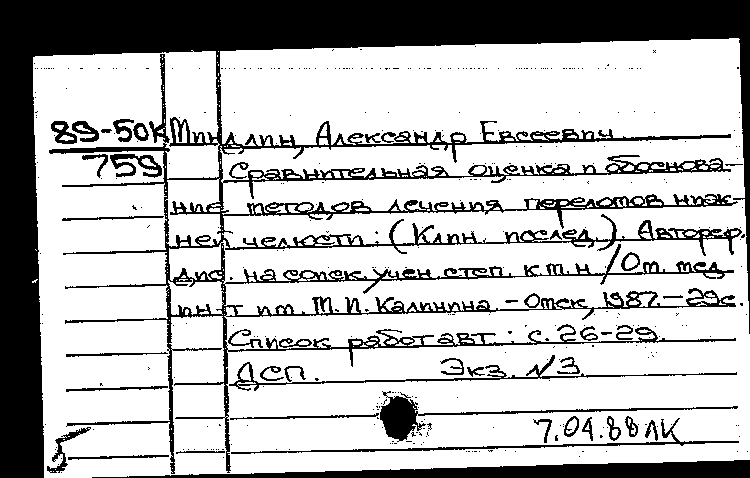 89-50к Миндлин, Александр Евсеевич
759 Сравнительная оценка и обоснова-
ние методов лечения переломов ниж-
ней челюсти: (Клин. исслед.). Автореф.
дис. на соиск. учен. степ. к.м.н / Ом. мед.
ин-т им. М. И. Калинина. - Омск, 1987. - 29с.
Список работ авт.: с. 26-29.
ДСП. Экз. №3
7.04.88 ЛК